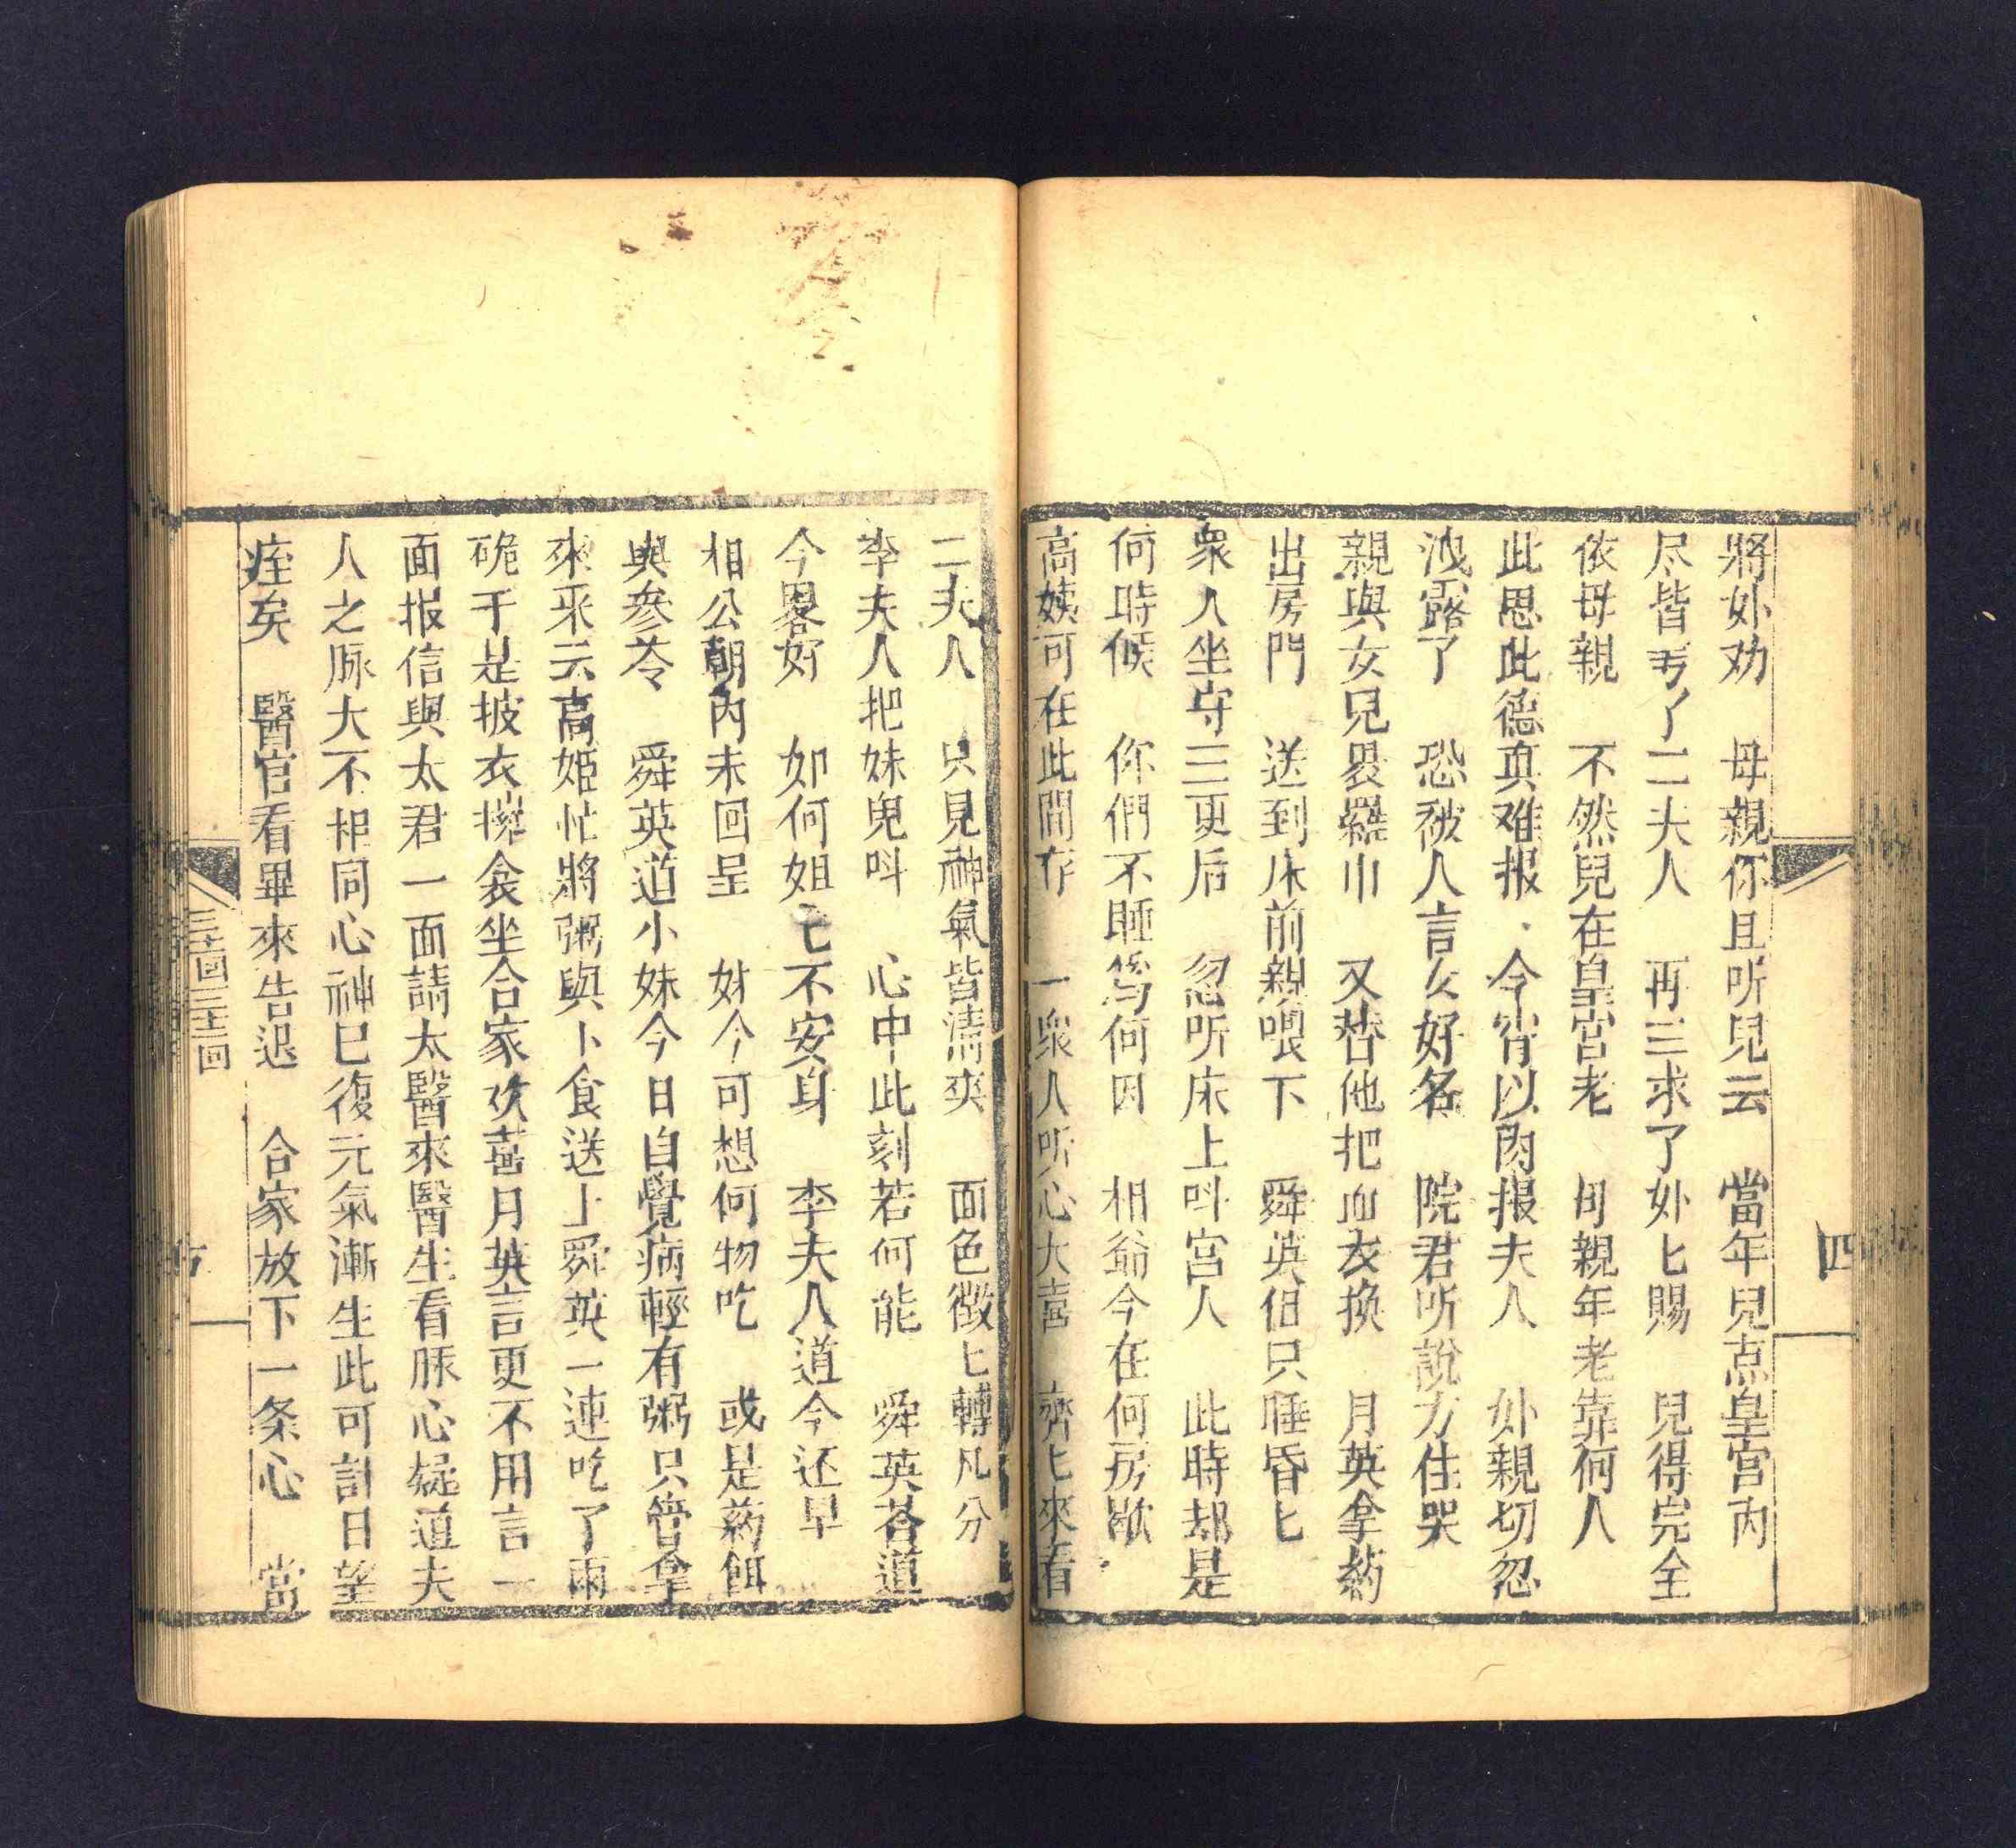 將妙劝　母親你且听兒云　當年兒点皇宮內
尽皆丂了二夫人　再三求了妙匕賜　兒得完全
依母親　不然兒在皇宮老　母親年老靠何人
此恩此德真难报　今宵以肉报夫人　妙親切忽
洩露了　恐被人言女好名　院君听說方住哭
親與女兒畏羅巾　又替他把血衣换　月英拿药
出房門　送到床前親喂下　舜英但只唾昏匕
衆人坐守三更后　忽听床上呌宫人　此時却是
何時候　你們不睡為何因　相爺今在何房歇
高姨可在此間存　一衆人听心大喜　齊匕來看
二夫人　只見神氣皆清爽　面色微匕轉凡分
李夫人把妹皃呌　心中此刻若何能　舜英荅道
今畧好　如何姐匕不安身　李夫人道今还早
相公朝內未回呈　妹今可想何物吃　或是药餌
與参苓　舜英道小妹今日自覺病輕有粥只管拿
來釆云高姬忙將粥與卜食送上舜英一連吃了兩
碗于是披衣擁衾坐合家欢喜月英言更不用言一
面报信與太君一面請太醫來醫生看脉心疑道夫
人之脉大不相同心神已復元氣漸生此可計日望
痊矣　醫官看畢來告退　合家放下一条心　當
三十回三十二回
四